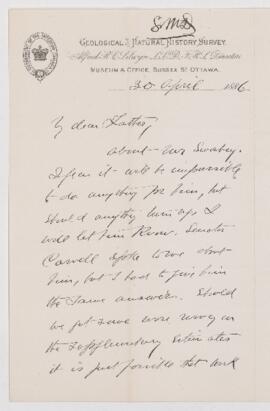 GEOLOGICAL & NATURAL HISTORY SURVEY.
Alfred R. C. Selwyn, LL.D., F.R.S., Director.
MUSEUM & OFFICE, SUSSEX ST. OTTAWA.
30 April 1886
My dear Father,
about Mr Swabey.
I fear it will be impossible
to do anything for him, but
should anything turn up I
will let him know. Senator
Carvell spoke to me about
him, but I had to give him
the same answer. Should
we get some more money on
the supplementary estimates
it is just possible that work